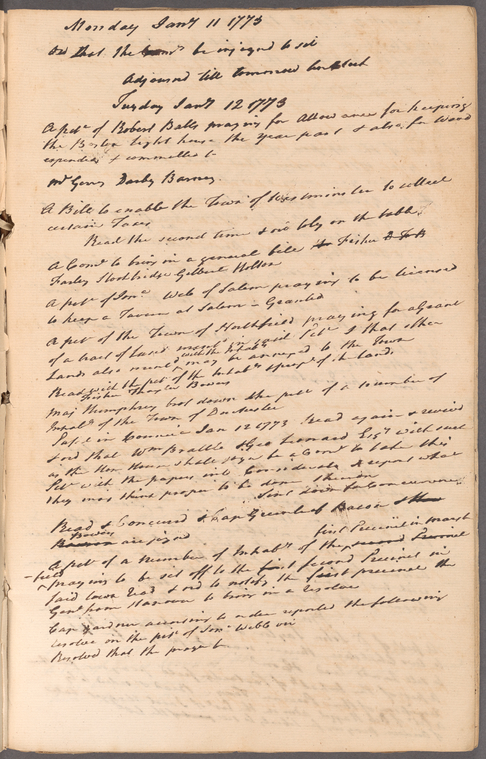 Monday Jany 11 1773
Ord that the Comt be injoyned to sit
Adjourned till tomorrow
Tuesday Jany 12 1773
A petn of Robert Balls praying for Allowance for keeping
the Boston Light house the Year past & also for Wood
expended & committed to
Mr Gerry Danby Barnes
A Bill to enable the Town of Westminster to collect
certain Taxes
Read the second time & ord to lay on the table
A Comt to bring in a general bill Fisher
Farley Stockbridge Gilbert Holten
A petn of Jona Web of Salem praying to be licensed
to keep a Tavern at Salem - Granted
A pet of the Town of Northfield praying for a Grant
of a tract of Land & that other
Lands also may be annexed to the Town
Read with the pet of the Inhabts of the Lands
Fisher Thayer Bowers
Maj Humphrey brot down the pet of a number of
Inhabts of the Town of Dorchester
In Council Jan 12 1773 Read again &
ord that Wm Brattle & Geo Leonard Esqs with such
as the Hon House shall join be a Comt to take this
Petn with the papers into Consideration & report what
they may think proper to be done thereon
Sent down for Concurrence
Read & Concurred & Cap Greenleaf Bacon &
Bowers are joyned
A pet of a number of Inhabts of the first Precinct in Marsh
-field praying to be set off to the second Precinct in
said town read & ord to notify the first precinct &
Gent from Hanover to bring in a resolve
Cap Gardner according to order reported the following
resolve on the petn of Jona Webb viz
Resolved that the prayer